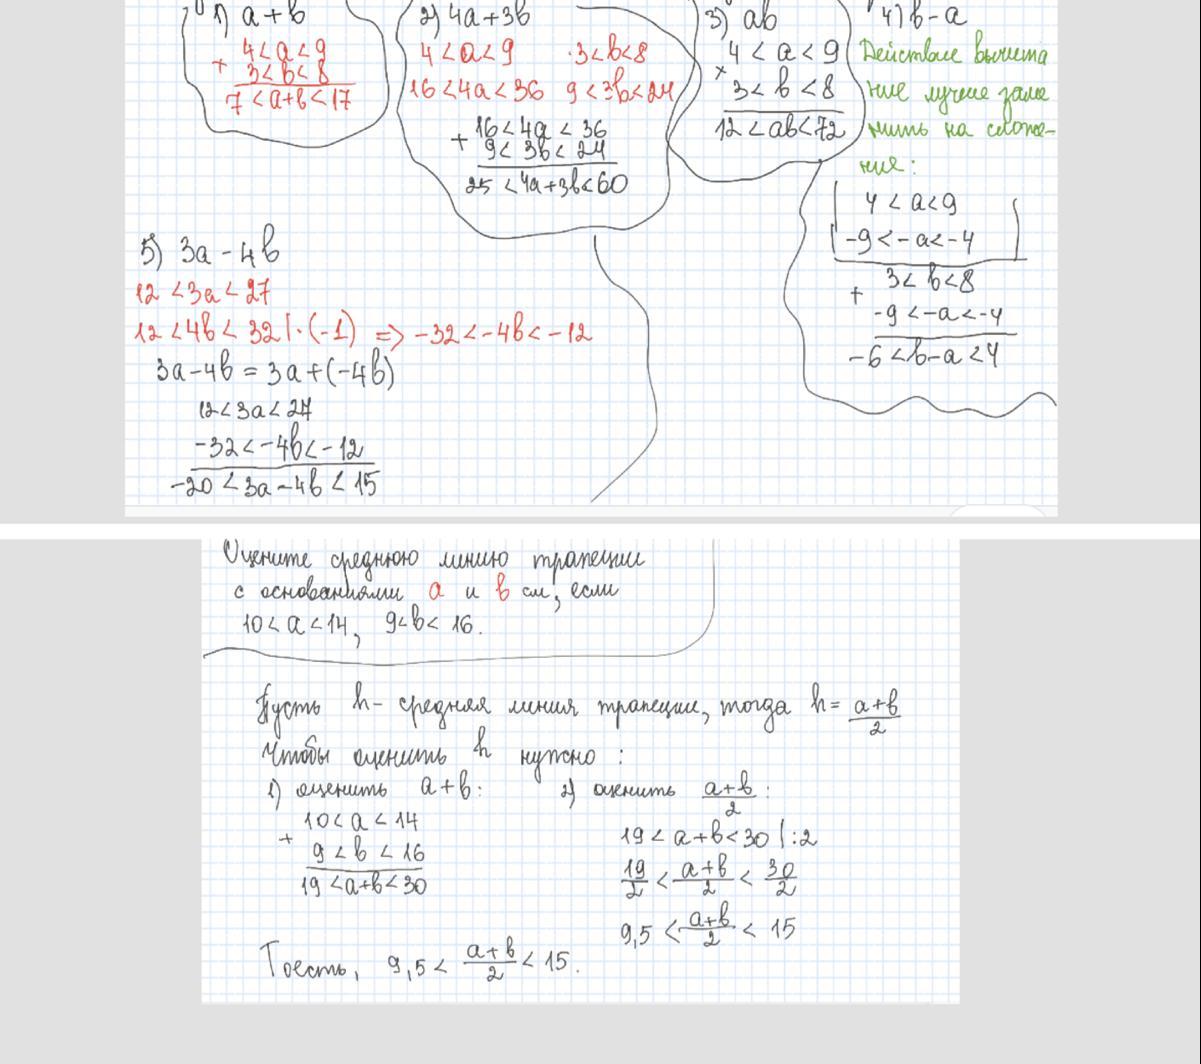 1) a+b
4<a<9
+ 3<b<8
7<a+b<17
2) 4a+3b
4<a<9 3<b<8
16<4a<36 9<3b<24
16<4a<36
+ 9<3b<24
25<4a+3b<60
3) ab
4<a<9
× 3<b<8
12<ab<72
4) b-a
Действие вычита
ние лучше заме
нить на сложе-
ние:
4<a<9
-9<-a<-4
3<b<8
+ -9<-a<-4
-6<b-a<4
5) 3a-4b
12<3a<27
12<4b<32|·(-1) => -32<-4b<-12
3a-4b=3a+(-4b)
12<3a<27
-32<-4b<-12
-20<3a-4b<15
Оцените среднюю линию трапеции
с основаниями a и b см, если
10<a<14, 9<b<16.
Пусть h- средняя линия трапеции, тогда h= a+b/2
Чтобы оценить h нужно:
1) оценить a+b:
10<a<14
+ 9<b<16
19<a+b<30
2) оценить a+b/2:
19<a+b<30|:2
19/2<a+b/2<30/2
9,5<a+b/2<15
Тоесть, 9,5<a+b/2<15.